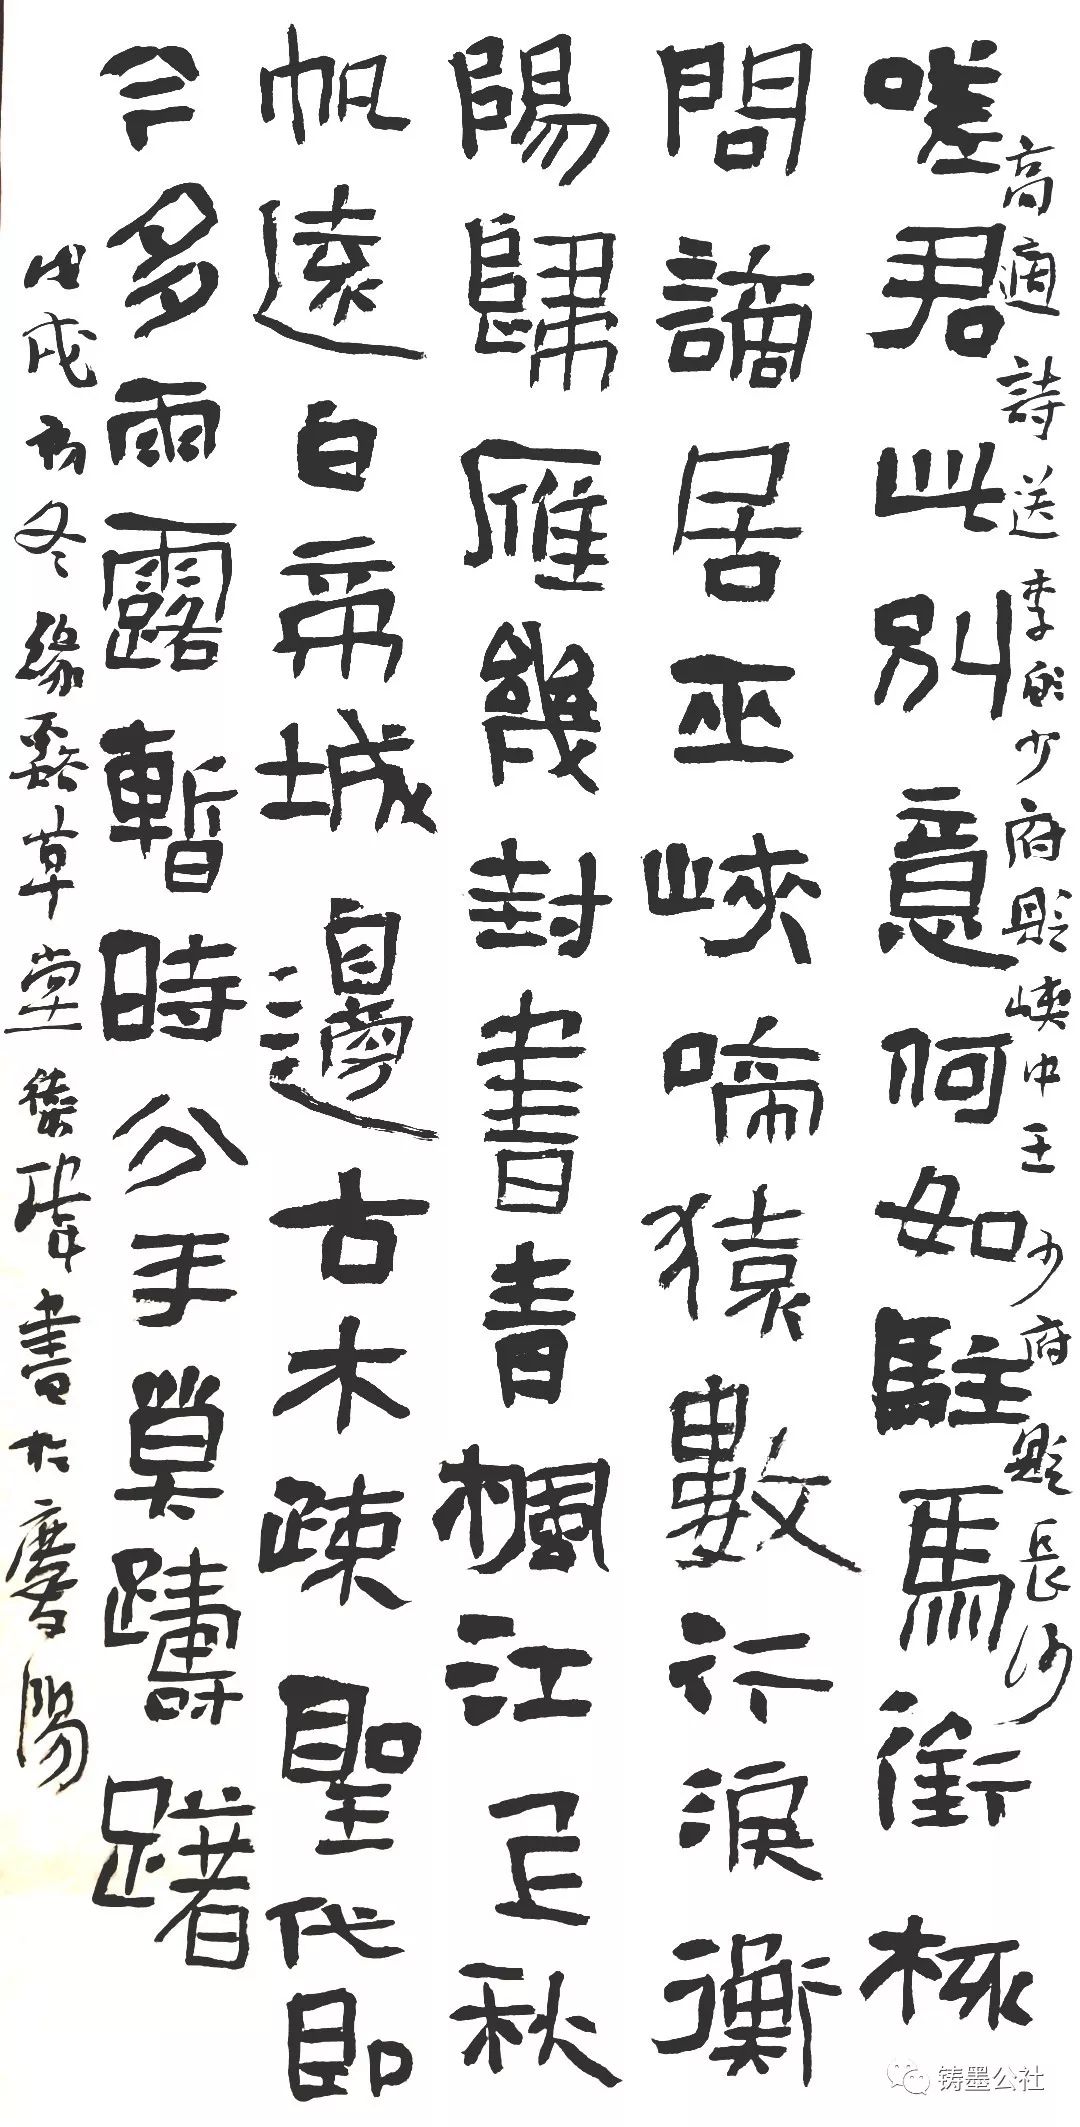 高適詩送李少府貶峽中王少府貶長沙
嗟君此別意何如駐馬銜杯
問謫居巫峽啼猿數行淚衡
陽歸雁幾封書青楓江上秋
帆遠白帝城邊古木疎聖代即
今多雨露暫時分手莫躊躇
戊戌初冬緣草堂瑋書於慶陽
铸墨公社